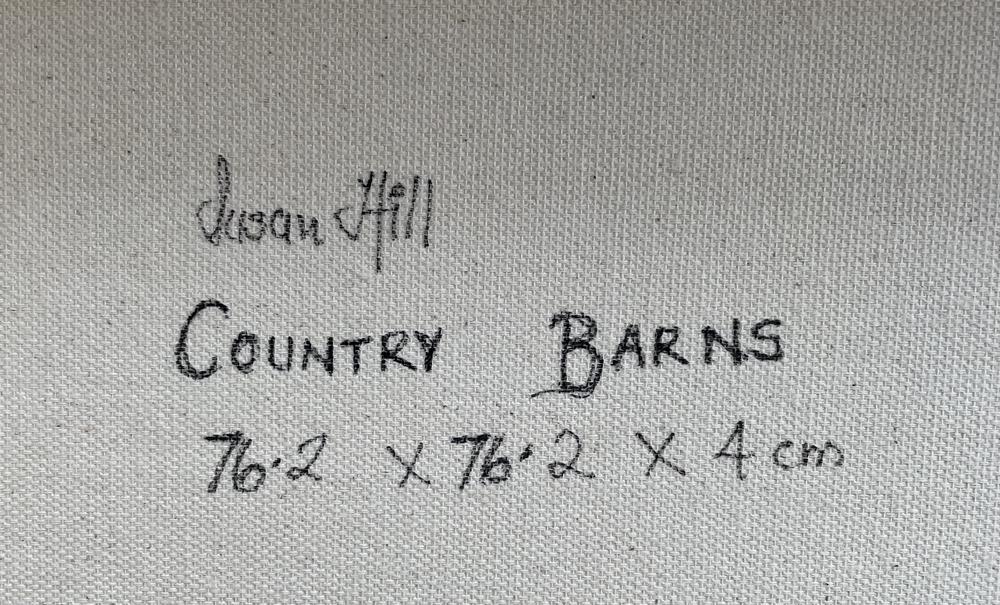 Susan Hill
COUNTRY BARNS
76·2 x 76·2 x 4 cm